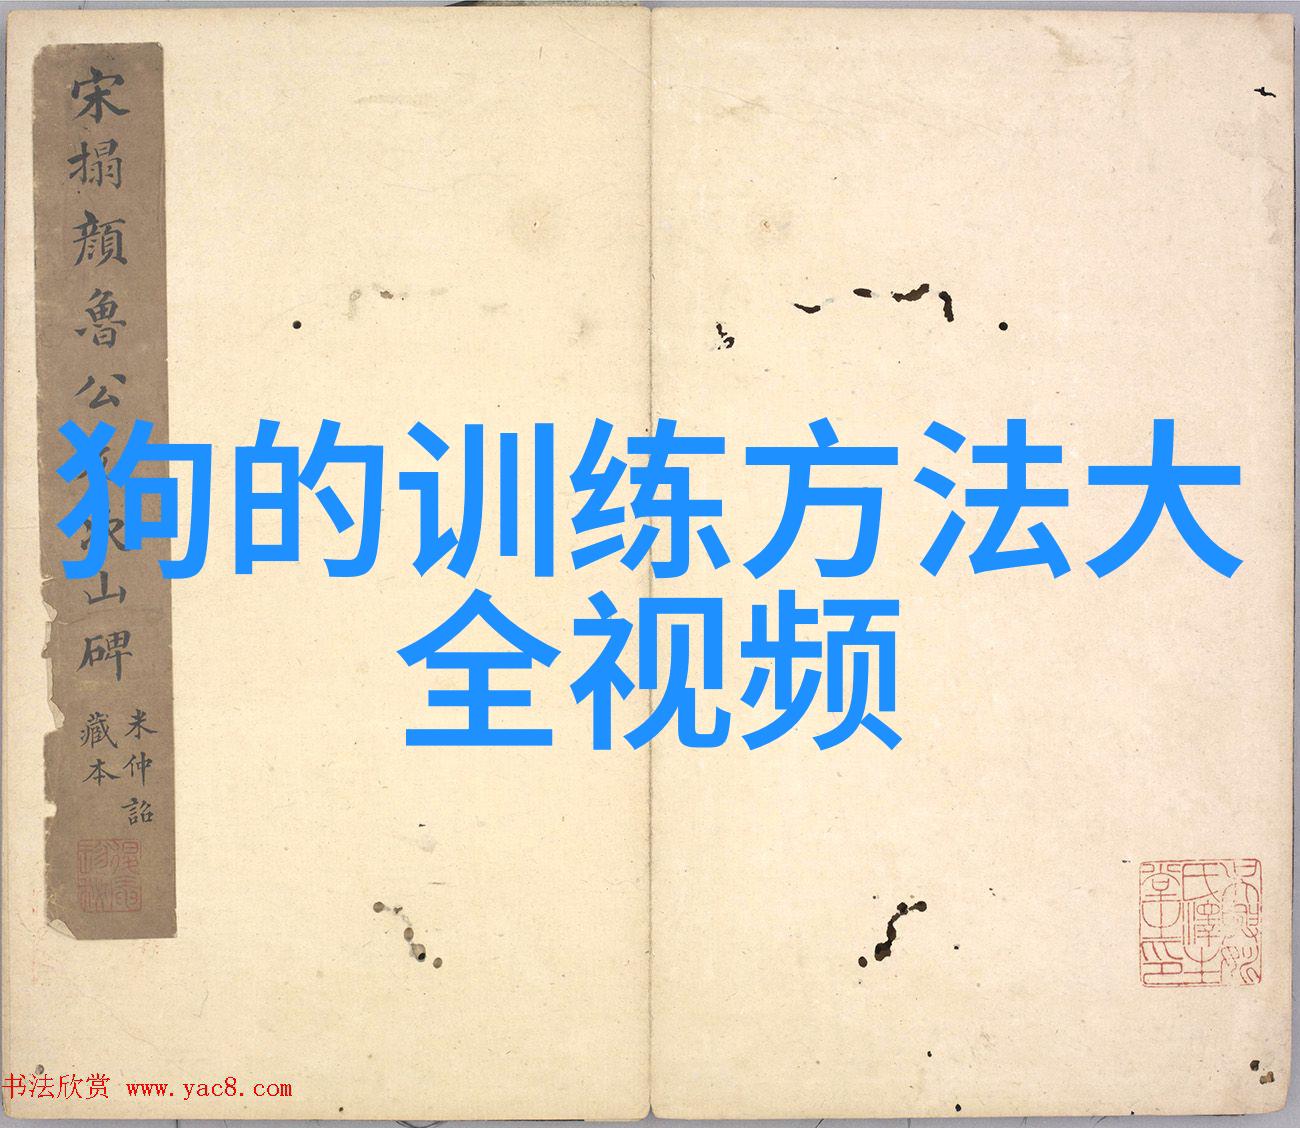 狗的训练方法大
全视频
宋搨顔魯公
次山碑
米仲詔
藏本
书法欣赏 www.yac8.com